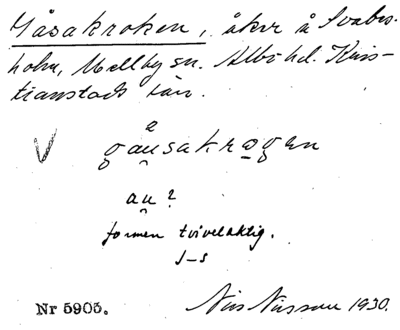 Gåsakroken, åker å Svabes-
holm, Mellby sn. Albo hd. Kris-
tianstads län.
a
gau̯sakrǫgen
au̯?
formen tvivelaktig.
J-s
Nr 5905. Nils Nilsson 1930.